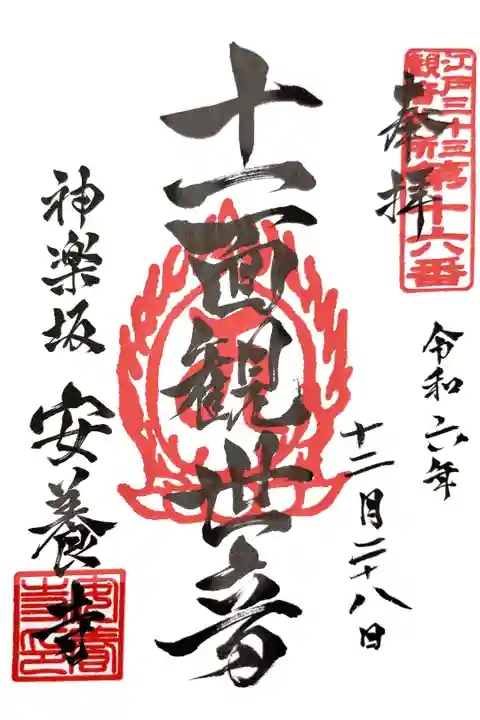 江戸三十三
観音札所
第十六番
奉拝
令和六年
十二月二十八日
十一面観世音
神楽坂
安養寺